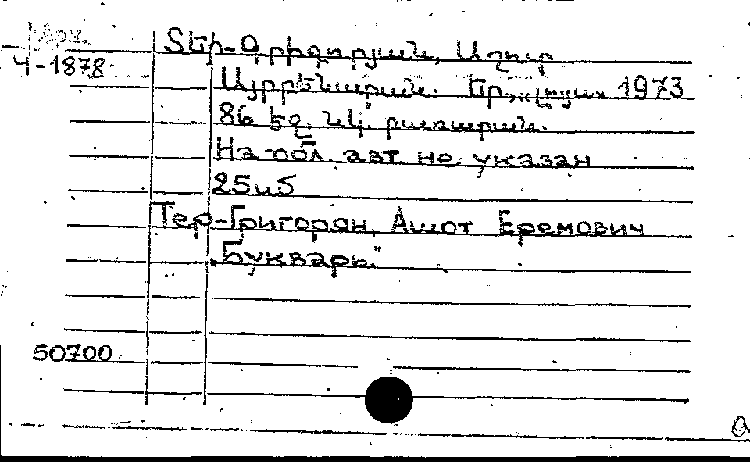 Арм.
Ч-1878
Տեր-Գրիգորյան, Աշոտ
Այբբենարան. Եր., «Լույս» 1973
86 եջ. նկ.
На обл. авт не указан
25 иб
Тер-Григорян, Ашот Еремович
„Букварь"
50700